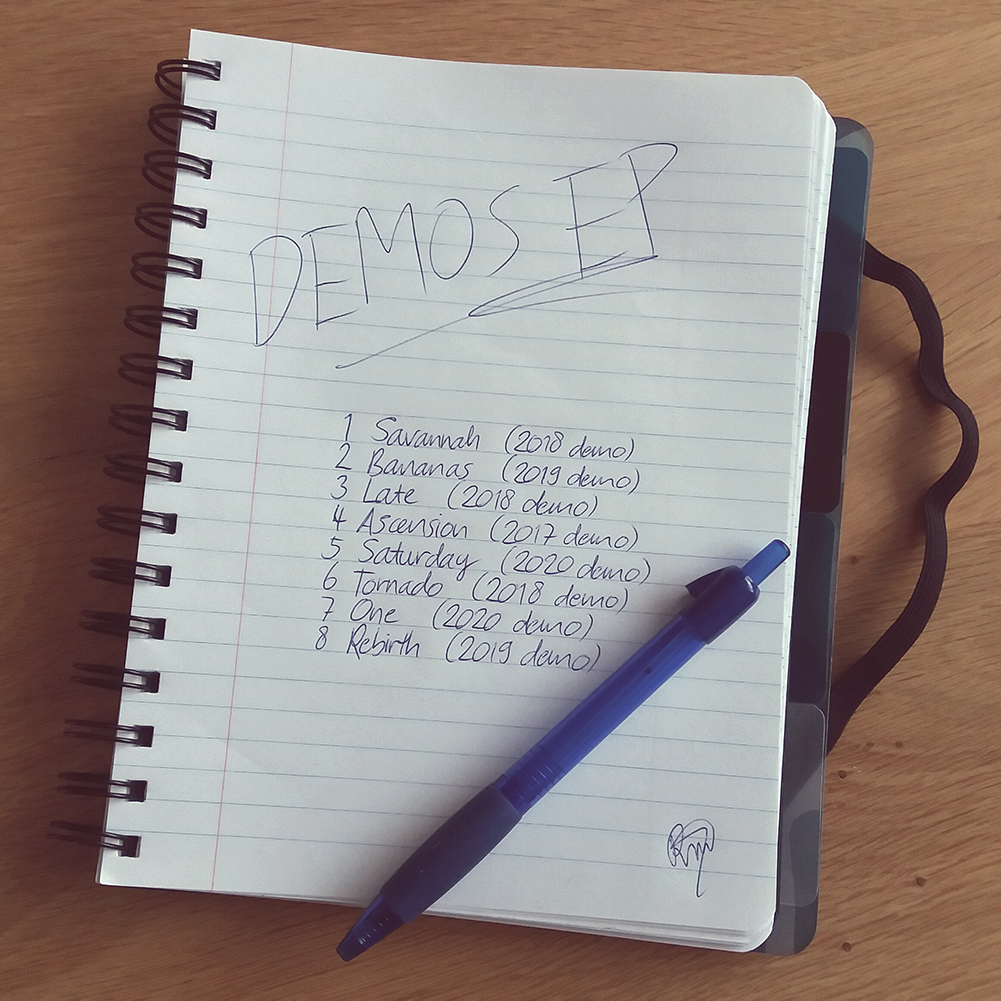 DEMOS EP
1 Savannah (2018 demo)
2 Bananas (2019 demo)
3 Late (2018 demo)
4 Ascension (2017 demo)
5 Saturday (2020 demo)
6 Tornado (2018 demo)
7 One (2020 demo)
8 Rebirth (2019 demo)